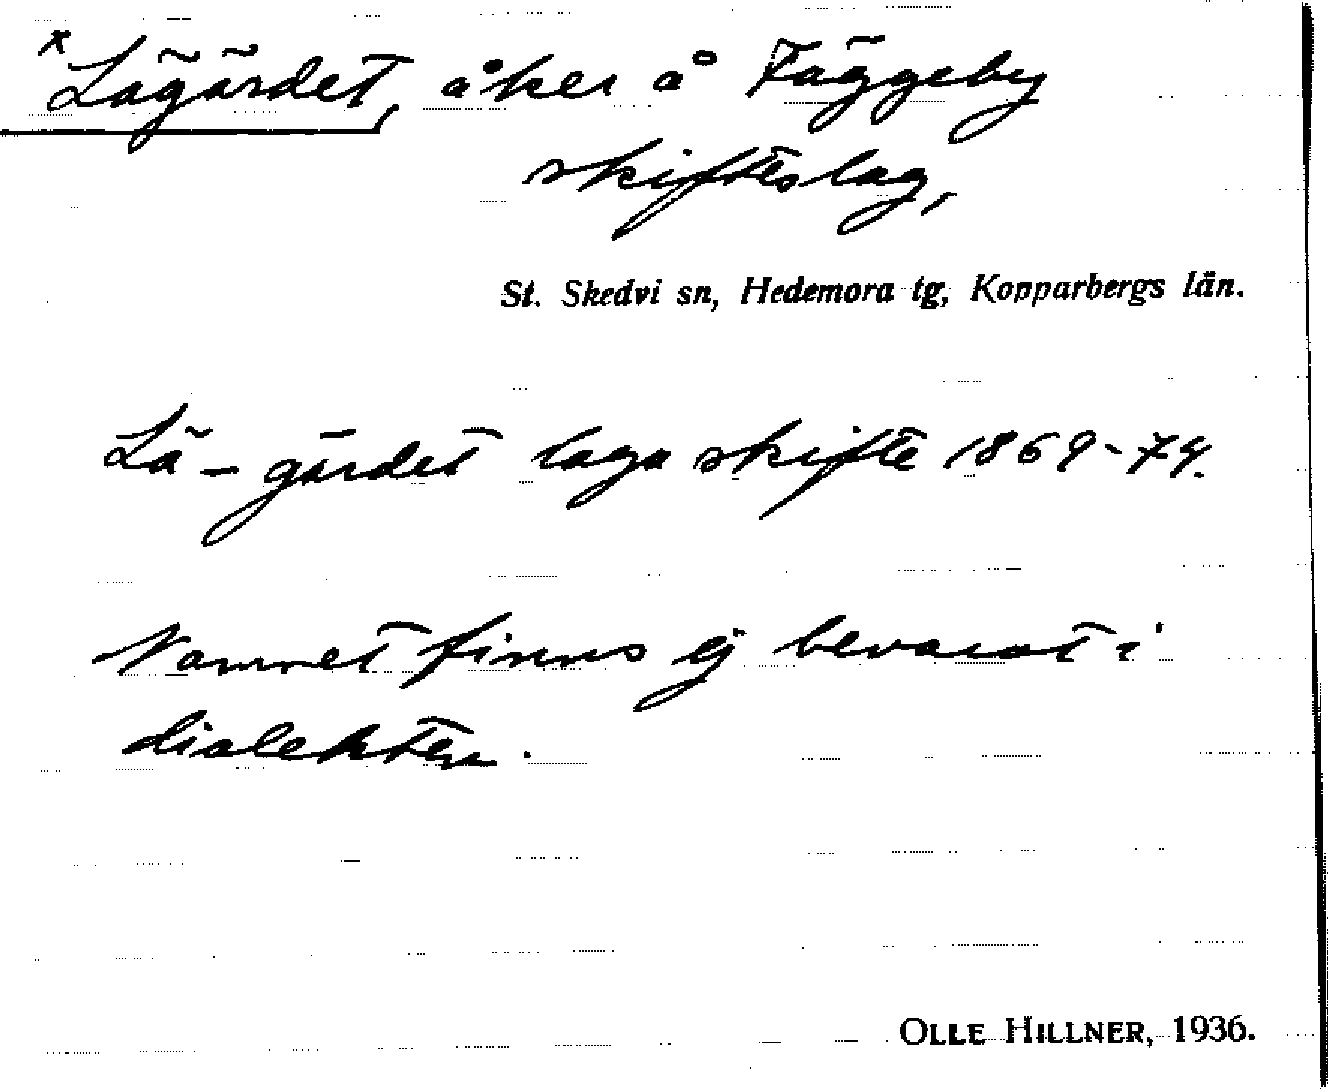 x Lägärdet, åker å Fäggeby
skifteslag,
St. Skedvi sn, Hedemora tg, Kopparbergs län.
Lä-gärdet laga skifte 1869-74.
Namnet finns ej bevarat i
dialekten.
OLLE HILLNER, 1936.